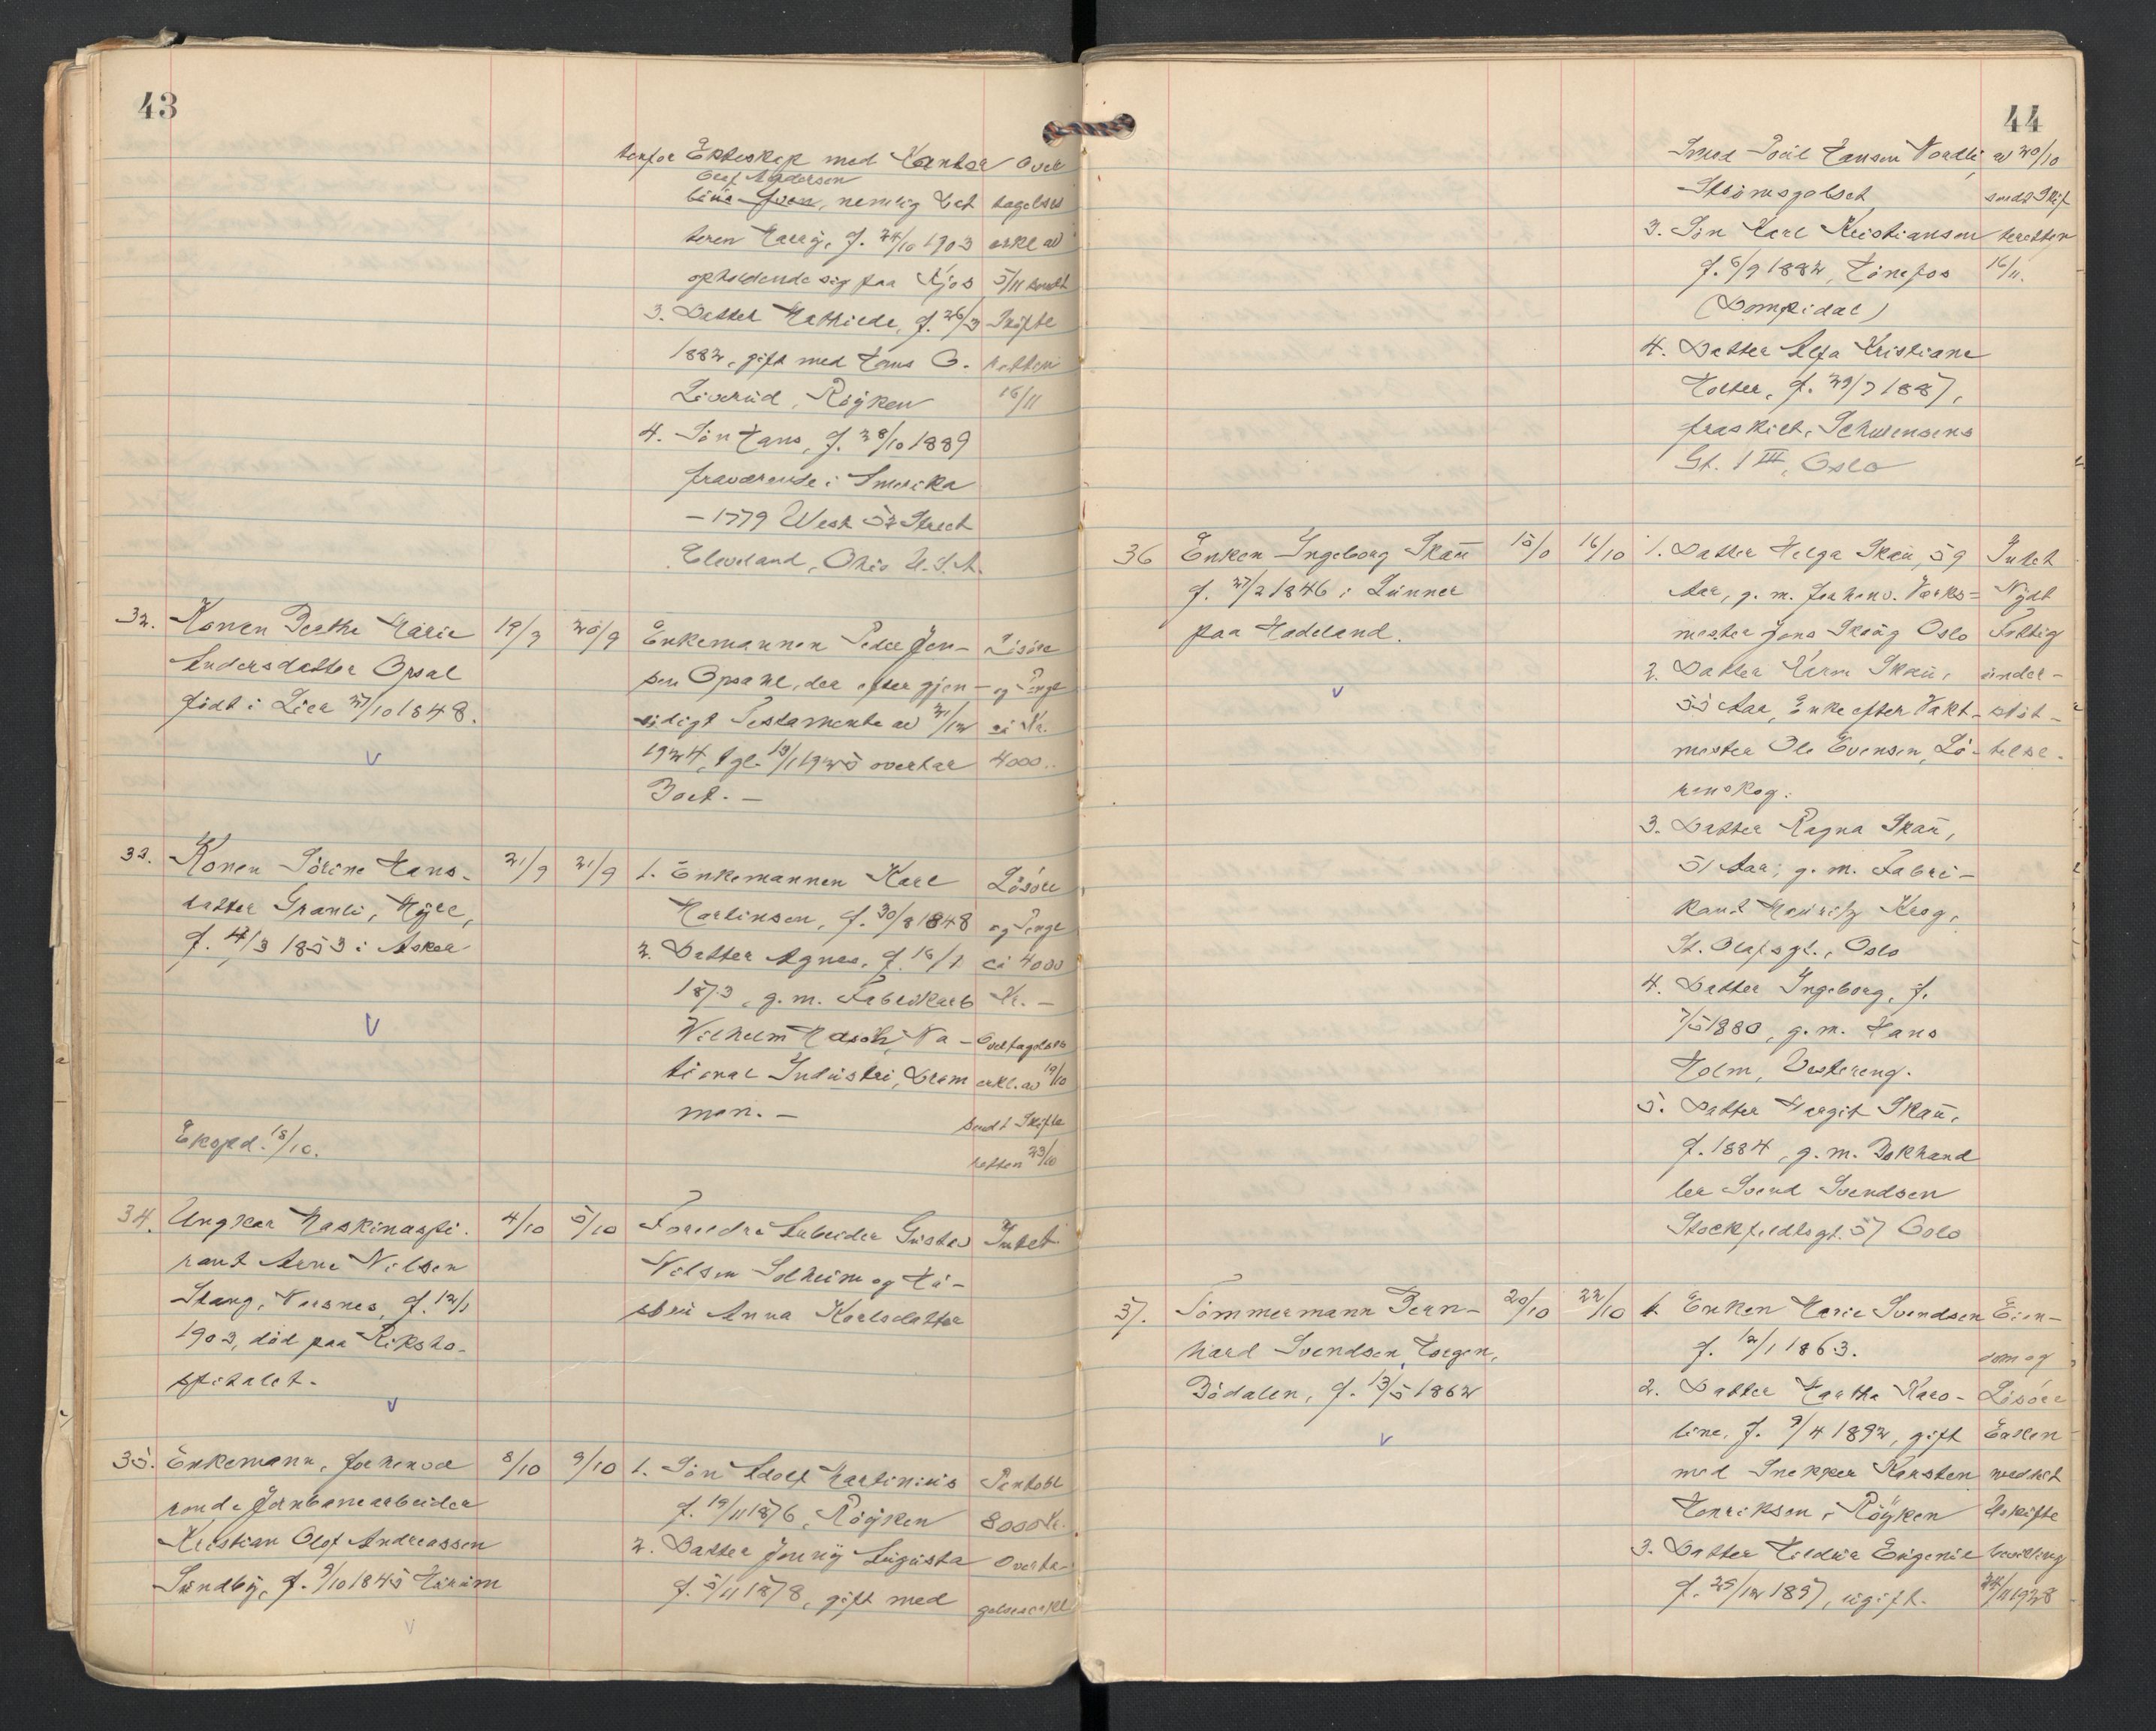 43
tenfor Ekteskap med Kantor
Olaf Andersen
nemlig Dat
teren Harry, f. 24/10 1903
opholdende sig paa Kjøs
3. Datter Mathilde, f. 26/3
1882, gift med Hans O.
Liverud, Røyken
4. Søn Hans, f. 28/10 1889
fraværende i Amerika
- 1779 West 52 Street
Cleveland, Ohio U.S.A.
Over
tagelses
erkl av
5/11 sendt
Skifte
retten
16/11
32. Konen Berthe Marie
Andersdatter Opsal
født i Lier 27/10 1848.
19/9
20/9
Enkemannen Peder Jen-
sen Opsahl, der efter gjen-
sidigt Testamente av 31/12
1924, tgl. 13/1 1925 overtar
Boet. -
Løsøre
og Penge
ca Kr.
4000..
33. Konen Sørine Hans-
datter Granli, Myre,
f. 4/3 1853 i Asker
Ekspd. 18/10.
21/9
21/9
1. Enkemannen Karl
Martinsen, f. 30/8 1848
2. Datter Agnes, f. 16/1
1873, g. m. Fabrikarb
Vilhelm Na-
tional Industri, Dram
men. -
Løsøre
og Penge
ca 4000
Kr. -
Overtagelses
erkl. av 19/10
sendt Skifte
retten 23/10
34. Ungkar Maskinaspi-
rant Arne Nilsen
Stang, Nærsnes, f. 12/1
1903, død paa Riksho-
spitalet.
4/10
5/10
Foreldre Arbeider Gustav
Nilsen Solheim og Hu-
stru Anna Karlsdatter
Intet
35. Enkemann, forhenvæ
rende Jernbanearbeider
Kristian Olof Andreassen
Sundby, f. 9/10 1845 Hurum
8/10
9/10
1. Søn Adolf Martinius
f. 19/11 1876, Røyken
2. Datter Jenny Augusta
f. 5/11 1878, gift med
8000 Kr.
Overta-
gelseserkl
44
Smed Poul Hansen Nordli,
Strømsgodset
3. Søn Karl Kristiansen
f. 6/9 1882, Hønefos
4. Datter Alfa Kristiane
Holter, f. 29/7 1887,
fraskilt, Schwensens
Gt. 1 III, Oslo
av 20/10
sendt Skif
teretten
16/11.
36 Enken Ingeborg Skau
f. 27/2 1846 i Lunner
paa Hadeland.
16/10
1. Datter Helga Skau, 59
Aar, g. m. forhenv. Verks=
mester Jens Skoug Oslo
2. Datter Karen Skau,
55 Aar, Enke efter Vakt-
mester Ole Evensen, Lø-
renskog.
3. Datter Ragna Skau,
51 Aar, g. m. Fabri-
kant Mauritz Krog,
St. Olafsgt., Oslo
4. Datter Ingeborg, f.
7/5 1880, g. m. Hans
Holm, Vestereng.
5. Datter Margit Skau,
f. 1884, g. m. Bokhand
ler Svend Svendsen
Stockfledtsgt. 57 Oslo
Intet
Nydt
Fattig
under-
støt-
telse.
37. Tømmermann Bern-
hard Svendsen, Torgen,
Bødalen, f. 13/5 1862
20/10
22/10
1. Enken Marie Svendsen
f. 12/1 1863.
2. Datter Martha Karo-
line, f. 9/4 1892, gift
med Snekker Karsten
Henriksen, Røyken
3. Datter Hildur Eugenie
f. 25/12 1897, ugift.
Eien-
dom og
Løsøre
Enken
meddelt
Uskifte
bevilling
24/11 1928